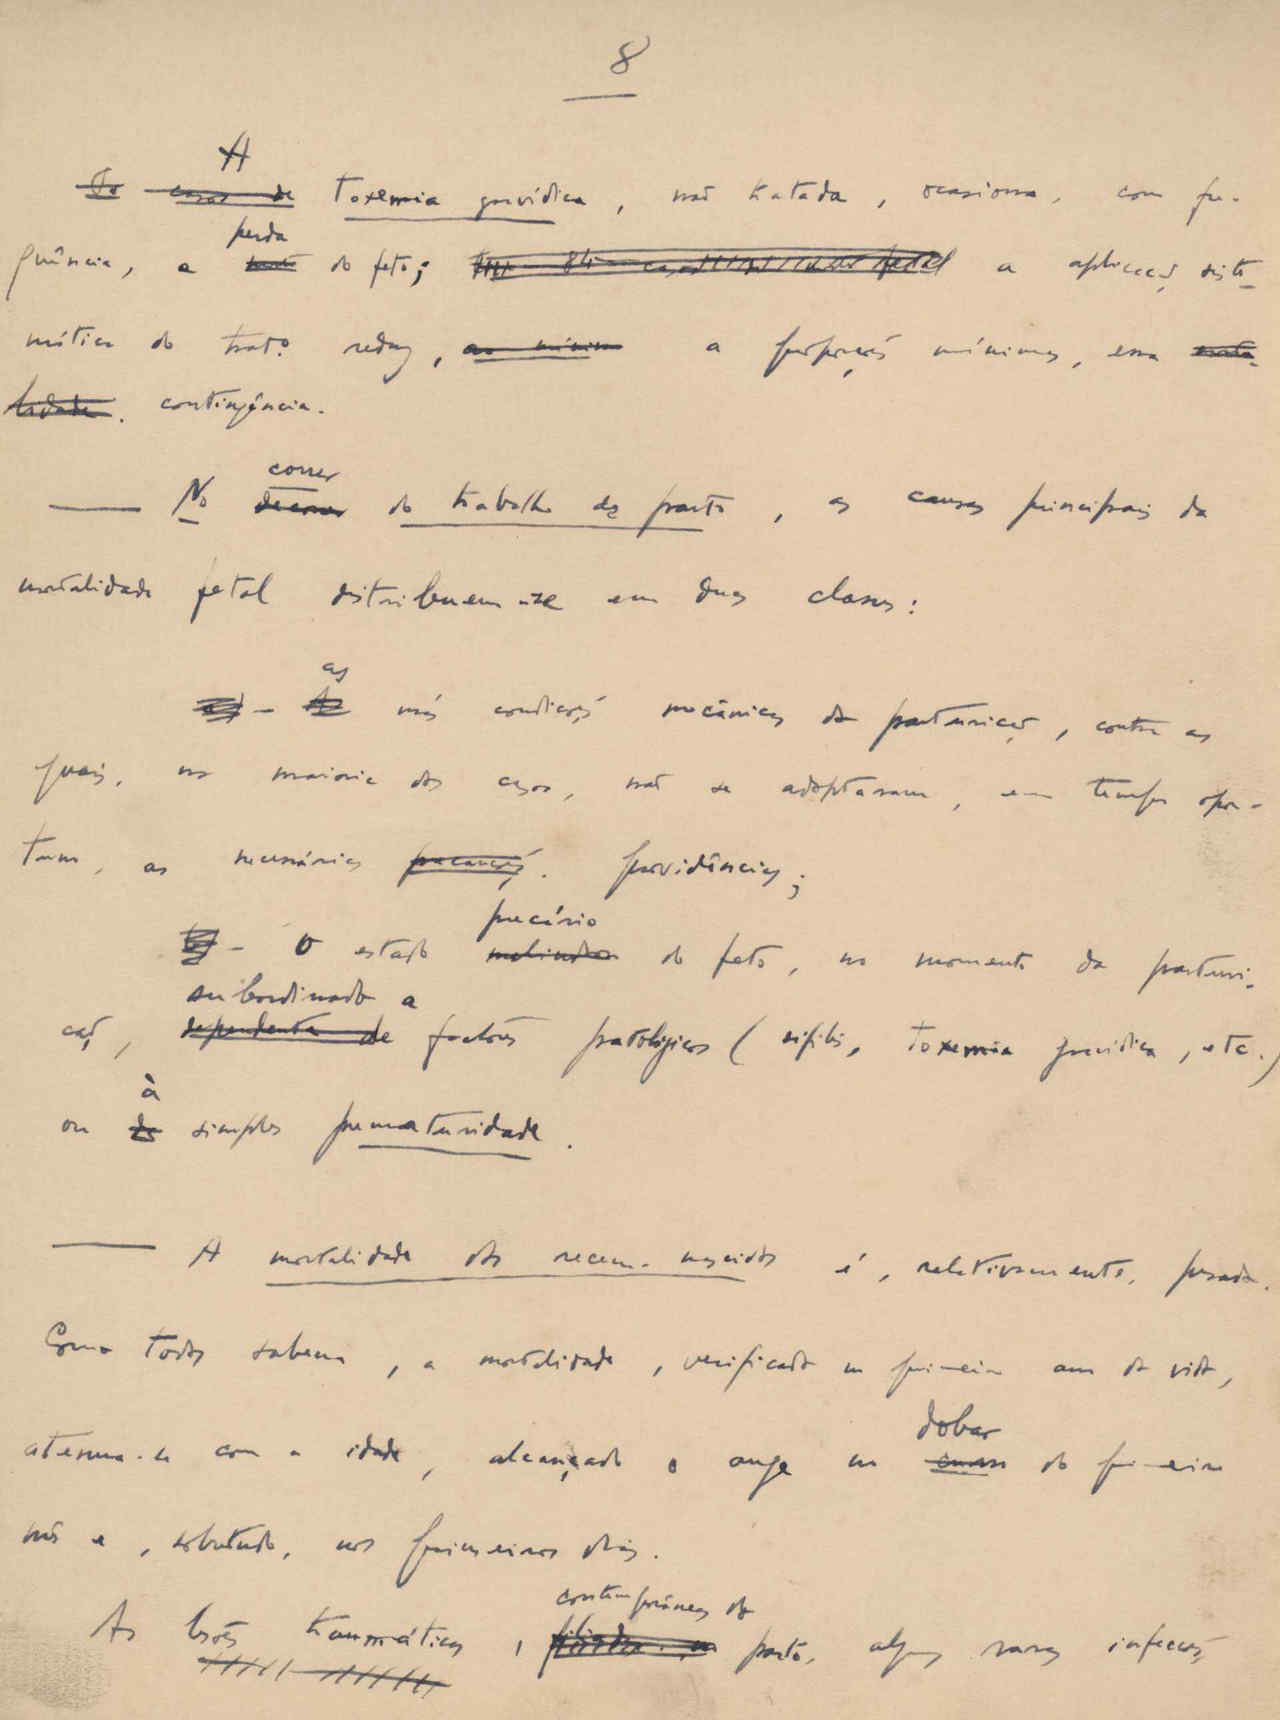 8
A
casos de toxemia gravídica, não tratada, ocasiona, com fre-
perda
quência, a morte do feto; a aplicação siste-
mática do tratº reduz, ao mínimo a proporções mínimas, essa morta-
lidade. contingência.
correr
— No decorrer do trabalho de parto, as causas principais da
mortalidade fetal distribuem-se em duas classes:
as
a) - As más condições mecânicas da parturição, contra as
quais, na maioria dos casos, não se adoptaram, em tempo opor-
tuno, as necessárias precauções. providências;
precário
b) - O estado melindroso do feto, no momento da parturi-
subordinado a
ção, dependente de factores patológicos (sífilis, toxemia gravídica, etc.)
à
ou da simples prematuridade.
— A mortalidade dos recem-nascidos é, relativamente, pesada.
Como todos sabem, a mortalidade, verificada no primeiro ano de vida,
dobar
atenua-se com a idade, alcançado o auge no do primeiro
mês e, sobretudo, nos primeiros dias.
contemporâneas do
As lesões traumáticas, parto, algumas raras infecções,